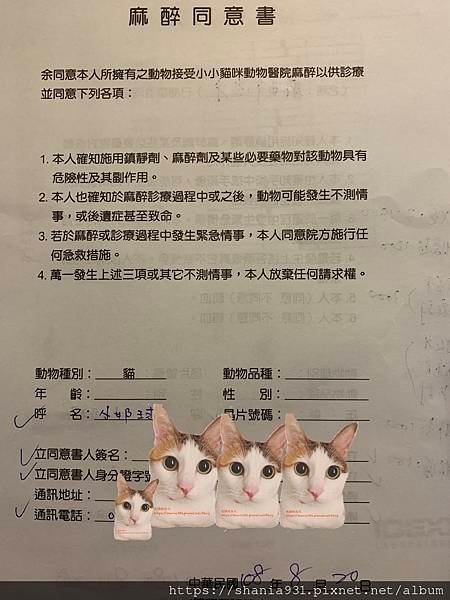 麻醉同意書
余同意本人所擁有之動物接受小小貓咪動物醫院麻醉以供診療
並同意下列各項：
1. 本人確知施用鎮靜劑、麻醉劑及某些必要藥物對該動物具有
危險性及其副作用。
2. 本人也確知於麻醉診療過程中或之後，動物可能發生不測情
事，或後遺症甚至致命。
3. 若於麻醉或診療過程中發生緊急情事，本人同意院方施行任
何急救措施。
4. 萬一發生上述三項或其它不測情事，本人放棄任何請求權。
動物種別： 貓 動物品種：
年 齡： 性 別：
呼 名： 晶片號碼：
立同意書人簽名：
立同意書人身分證字號
通訊地址：
通訊電話：0
中華民國 108 年 8 月 20 日
https://shania931.pixnet.net/album